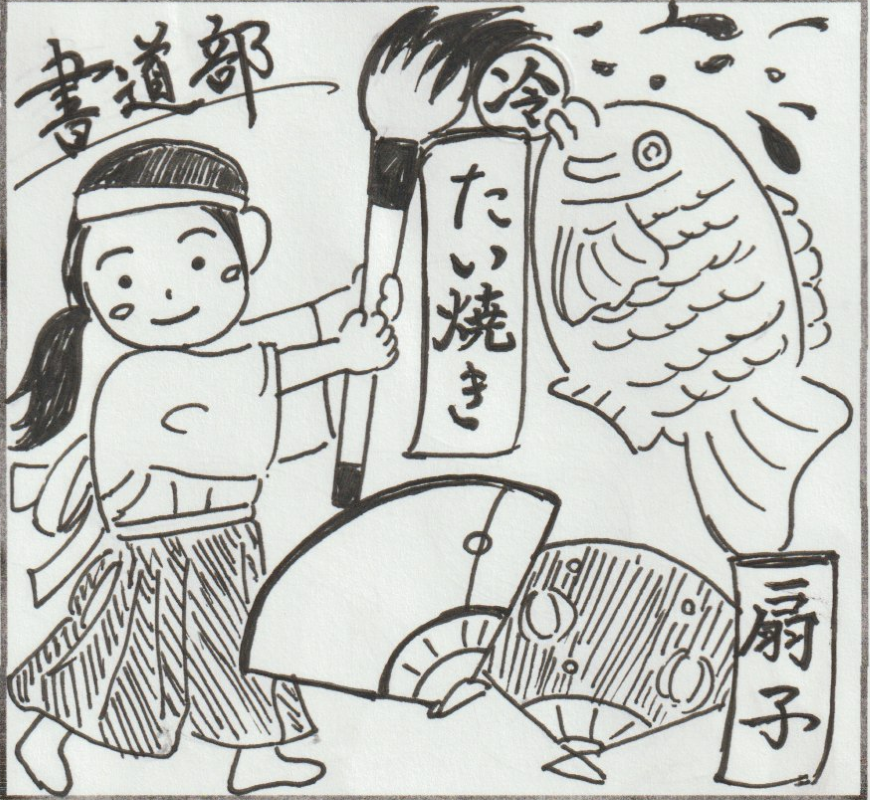 書道部
冷
たい焼き
扇子